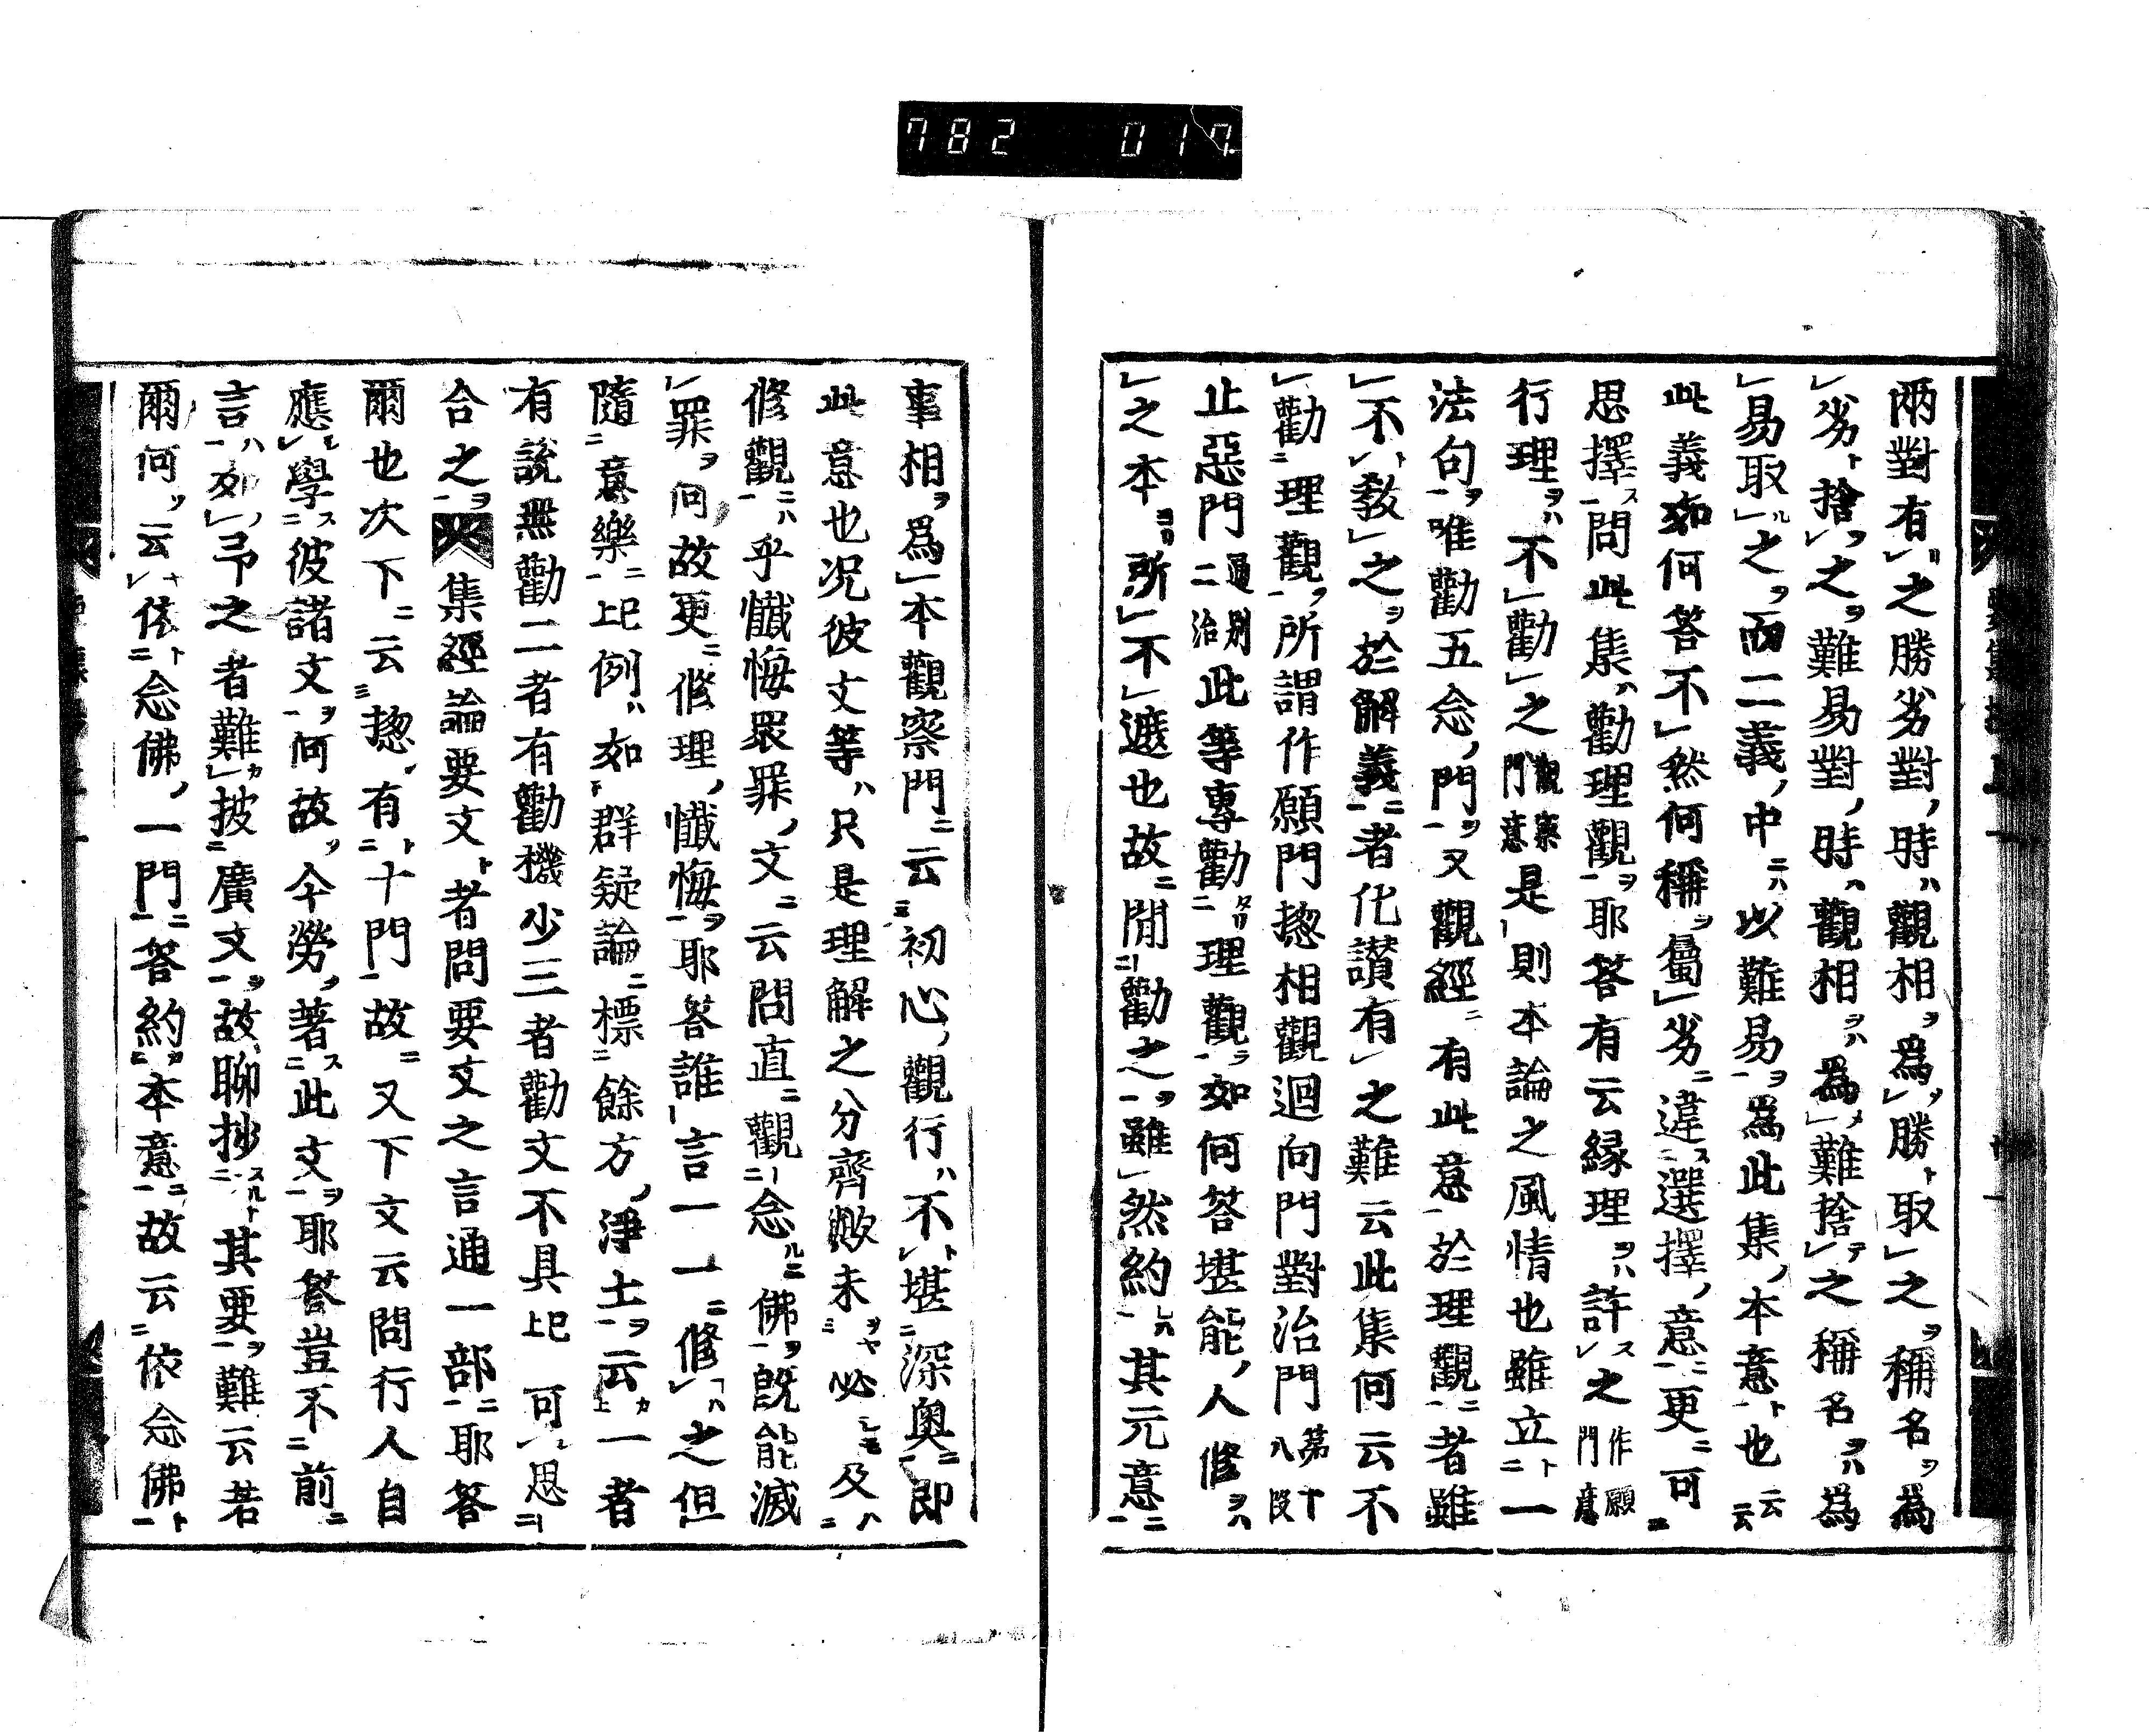 782 017
兩對有之勝劣對時觀相爲勝取之稱名爲
劣捨之難易對時觀相爲難捨之稱名爲
易取之而二義中以難易爲此集本意也云云
此義如何答不然何稱屬劣違選擇意更可
思擇問此集勸理觀耶答有云縁理許之作願門意
行理不勸之觀察門意是則本論之風情也雖立一
法句唯勸五念門又觀經有此意於理觀者雖
不教之於解義者化讃有之難云此集何云不
勸理觀所謂作願門揔相觀迴向門對治門第十八段
止惡門二通別治此等專勸理觀如何答堪能人修
之本所不遮也故閒勸之雖然約其元意
事相爲本觀察門云初心觀行不堪深奥即
此意也况彼文等只是理解之分齊歟未必及
修觀乎懺悔衆罪文云問直觀念佛旣能滅
罪何故更修理懺悔耶答誰言一一修之但
隨意樂已上例如群疑論標餘方淨土云云一者
有說無勸二者有勸機少三者勸文不具已上可思
合之集經論要文者問要文之言通一部耶答
爾也次下云揔有十門故又下文云問行人自
應學彼諸文何故今勞著此文耶答豈不前
言如予之者難披廣文故聊抄其要難云若
爾何云依念佛一門答約本意故云依念佛